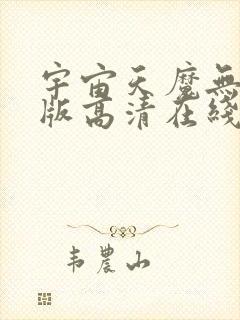 宇宙天魔無
版高清在綫
韦農山